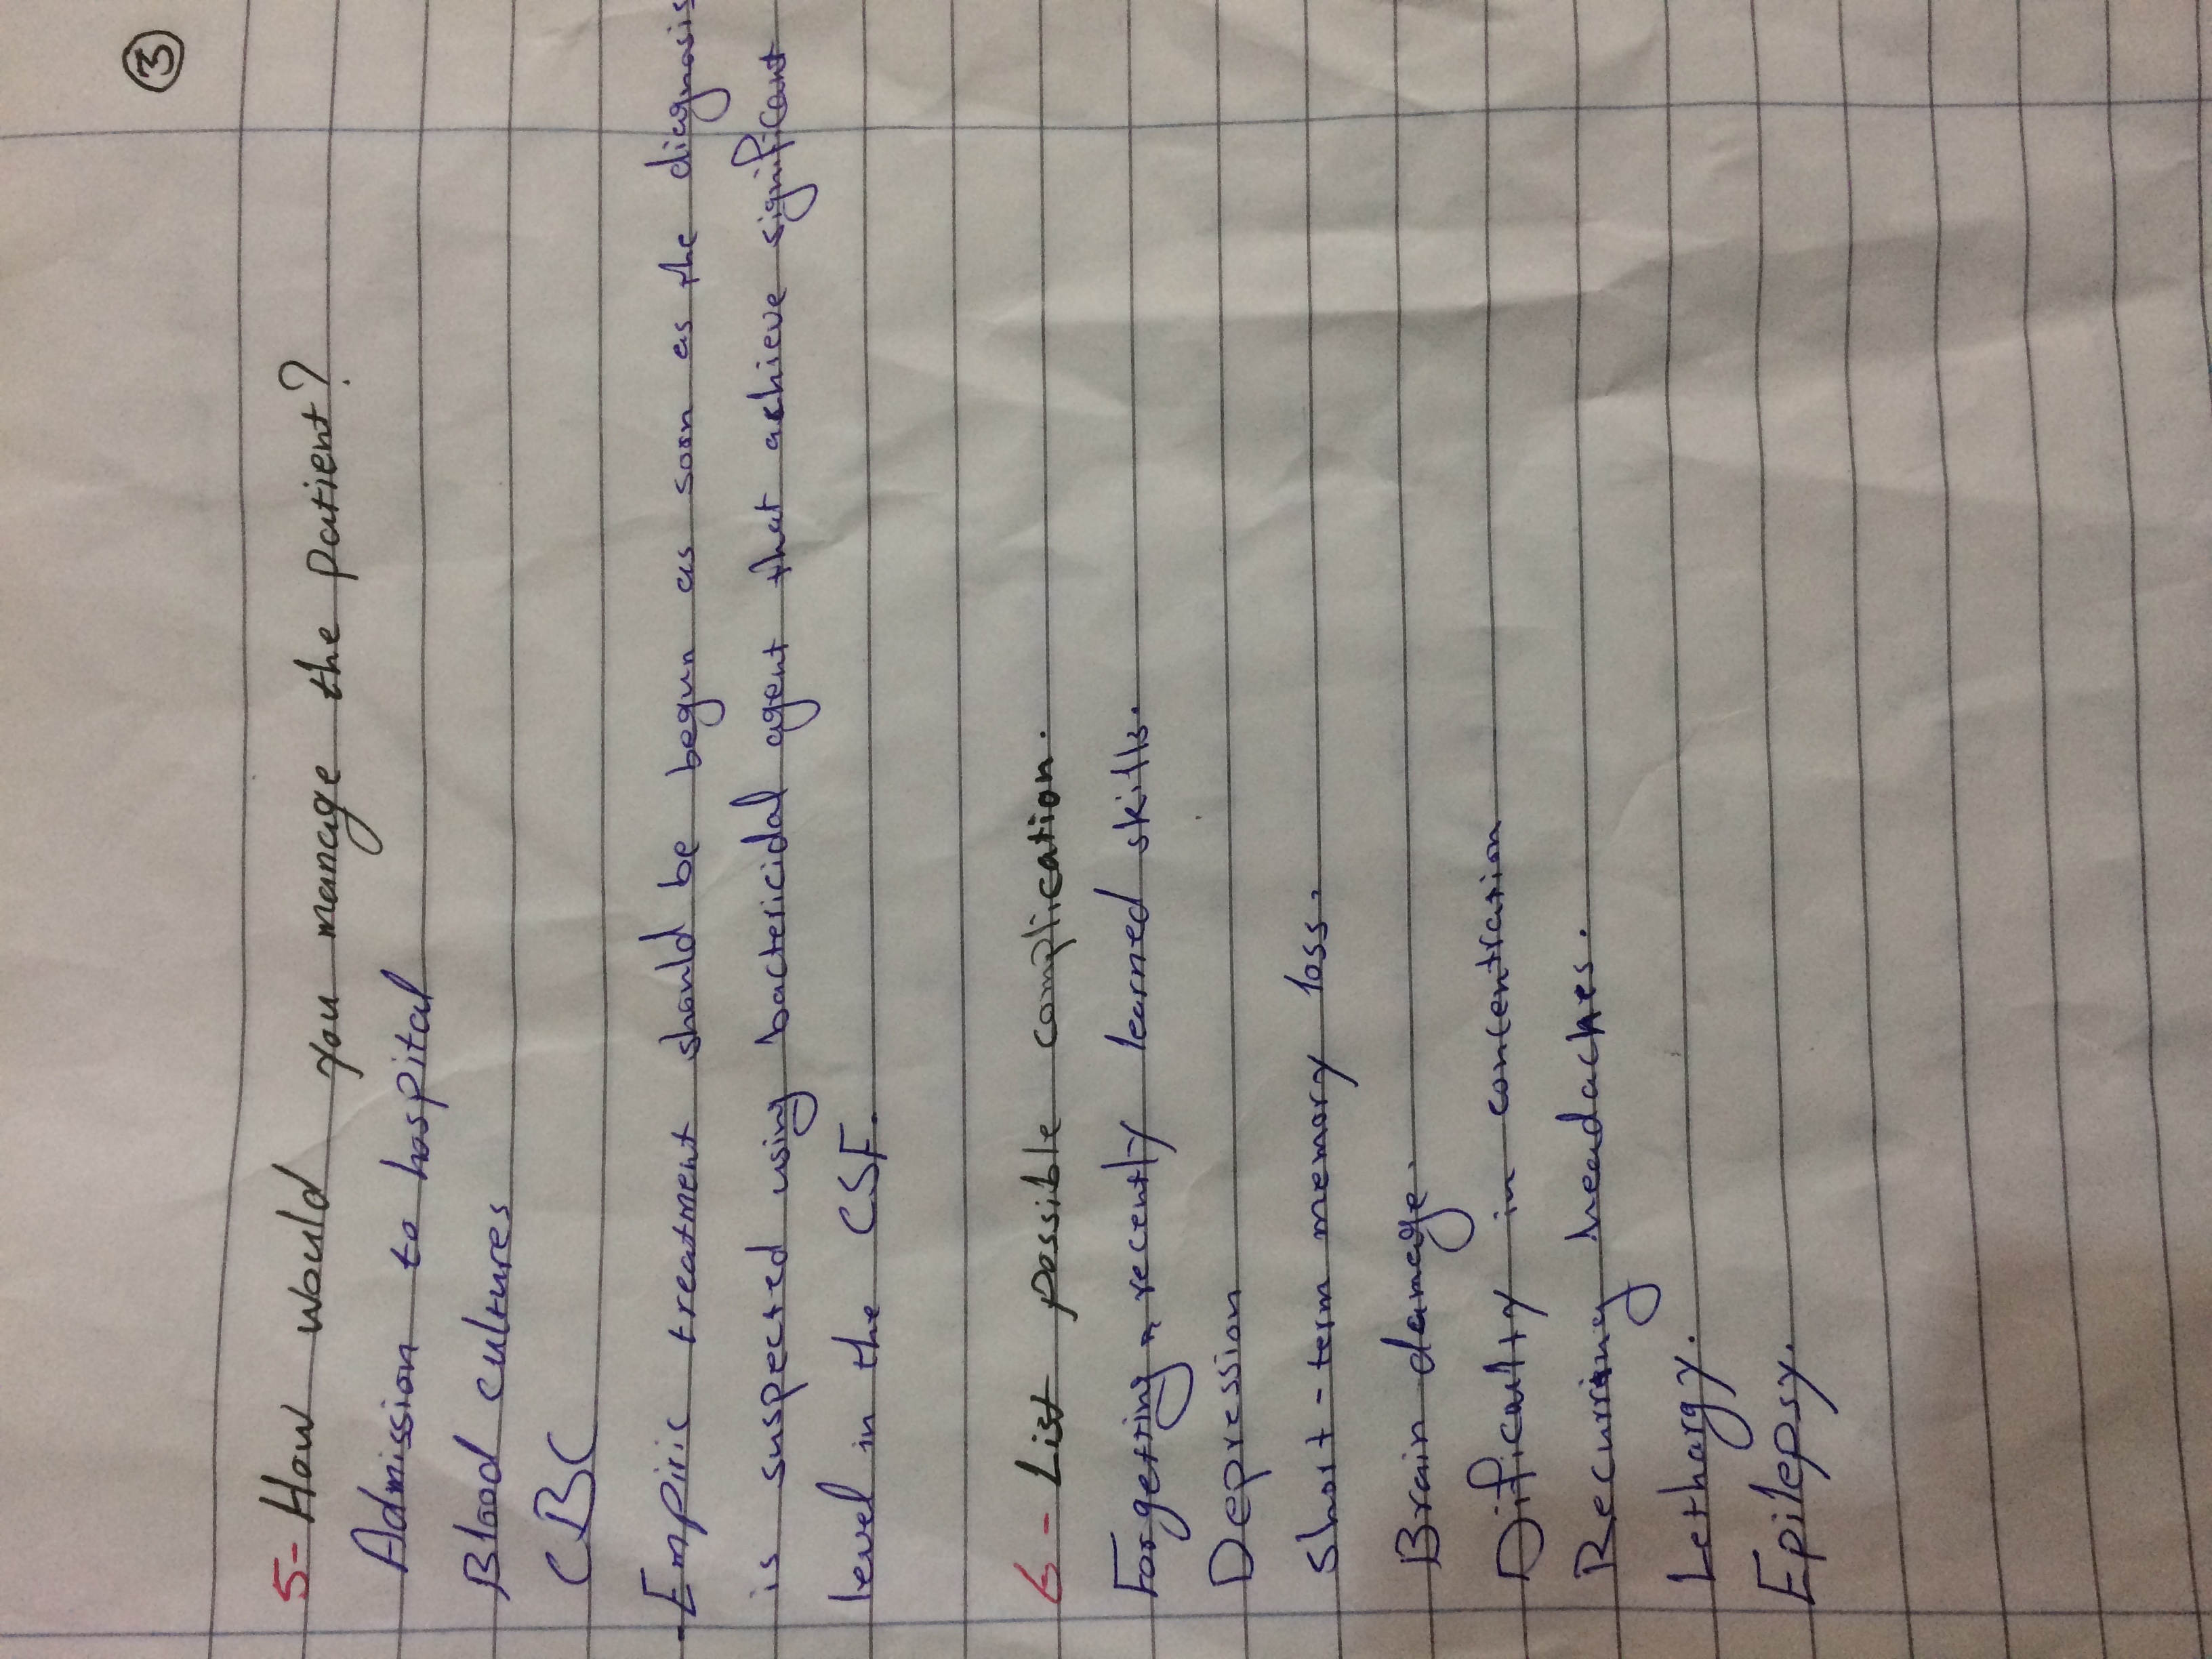 ③
5- How would you manage the patient?
Admission to hospital
Blood cultures
CBC
- Empiric treatment should be begun as soon as the diagnosis
is suspected using bactericidal agent that achieve significant
level in the CSF.
6- List possible complication.
Forgetting recently learned skills.
Depression
Short-term memory loss.
Brain damage.
Difficulty in concentration
Recurring headaches.
Lethargy.
Epilepsy.